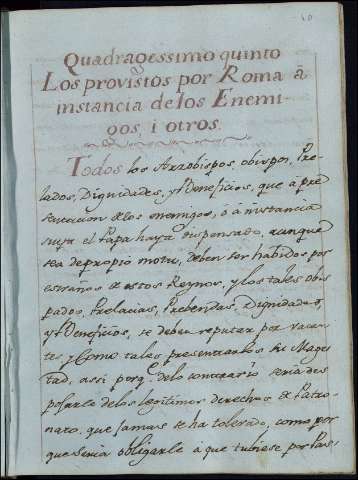 40
Quadragessimo quinto
Los provistos por Roma â
instancia de los Enemi-
gos, i otros.
Todos los Arzobispos, obispos, Pre-
lados, Dignidades, y Beneficios, que â pre
sentacion de los enemigos, ô â instancia
suya el Papa haya dispensado, aunque
sea de propio motu, deben ser habidos por
estraños de estos Reynos, y los tales obis
pados, Prelacias, Prebendas, Dignidades,
y Beneficios, se deben reputar por vacan
tes y como tales presentarlos Su Mages
tad, assi porq.e delo contrario seria des
pojarle delos legitimos derechos de Patro-
nato, que jamas se ha tolerado, como por
que seria obligarle â que tubiese por Pas-